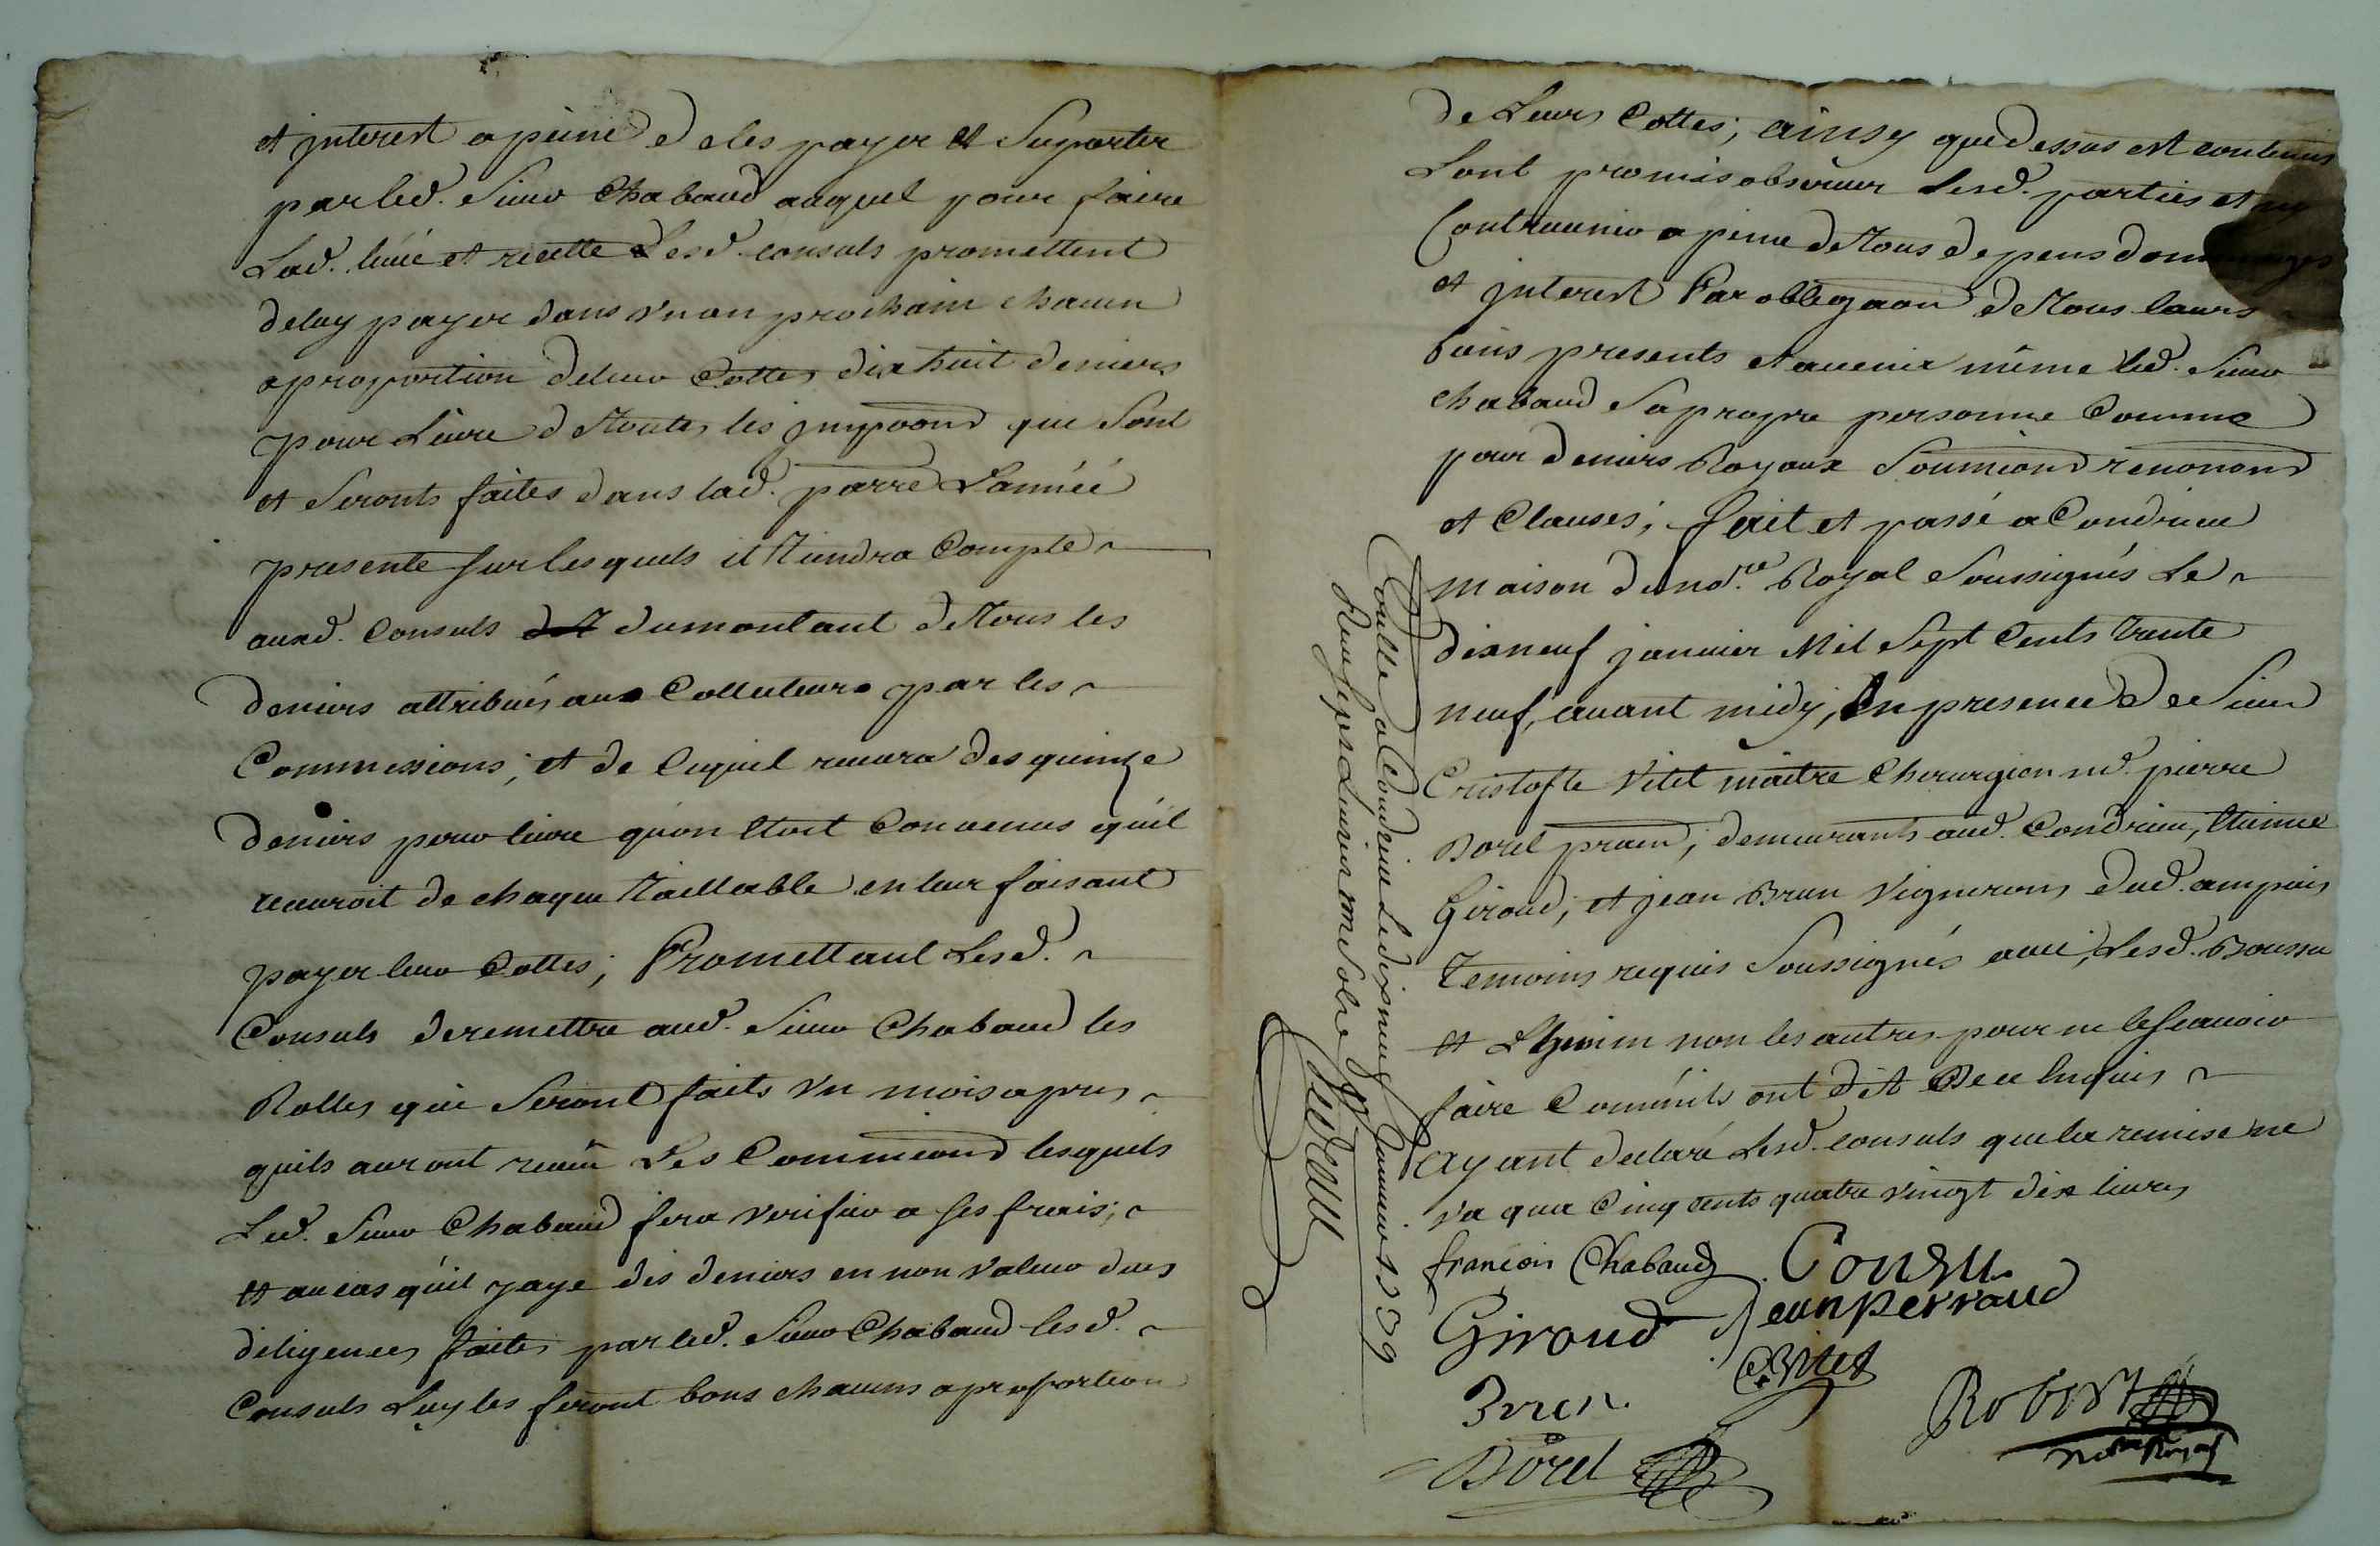 et jnterest a peine de les payer et Suporter
par led. Sieur Chabaud auquel pour faire
Lad. levée et recette Lesd. consuls promettent
de luy payer dans vn an prochain chacun
a proportion de leur Cottes dix huit deniers
pour Livre de Toutes les jmpoons que Sont
et Seronts faites dans lad. parre L'année
presente sur lesquels il Tiendra Compte
auxd. Consuls du montant de Tous les
deniers attribués aux Collecteurs par les
Commissions; et de luquel recevra des quinze
deniers pour livre qu'on Etoit Convenus qu'il
recevroit de chaque Taillable en leur faisant
payer leur Cottes; Promettant Lesd.
Consuls de remettre aud. Sieur Chabaud les
Rolles que Seront faits Vn mois apres
quils auront receu Les Commissions lesquels
Led. Sieur Chabaud fera verifier a ses frais;
et au cas qu'il y aye des deniers en non valeur dues
diligences faites par led. Sieur Chabaud lesd.
Consuls Luy les feront bons chacuns a proportion
de Leurs Cottes; ainsy que dessus est contenus
Lont promis observer Lesd. parties et ny
Contrevenir a peine de Tous depens dommages
et jnterest Par obligaon de Tous leurs
biens presents et avenir même led. Sieur
chabaud Sa propre personne Comme
pour deniers Royaux Soumions renonons
et Clauses; fait et passé a Condrieu
maison du no.re Royal Soussignés Le
dix neuf janvier Mil Sept Cents trente
neuf, avant midy, En presence de Sieur
Cristofle Vitet maitre Cherurgien md. pierre
Borel pratn, demeurants aud. Condrieu, Etienne
Giroud, et jean Brun Vignerons dud. ampuis
Temoins requis Soussignés avec, Lesd. Boussu
et non les autres pour ne le Scauoir
faire Comm'ils ont dit De ce Enquis
Ayant declaré Lesd. consuls que la remise ne
va que Cinq cents quatre vingt dix livres
francois Chabaud
Giroud Jean perraud
C. Vitet
Brun
Borel
Robert
no.re Royal
Controllé a Condrieu Le dix neuf Janvier 1739